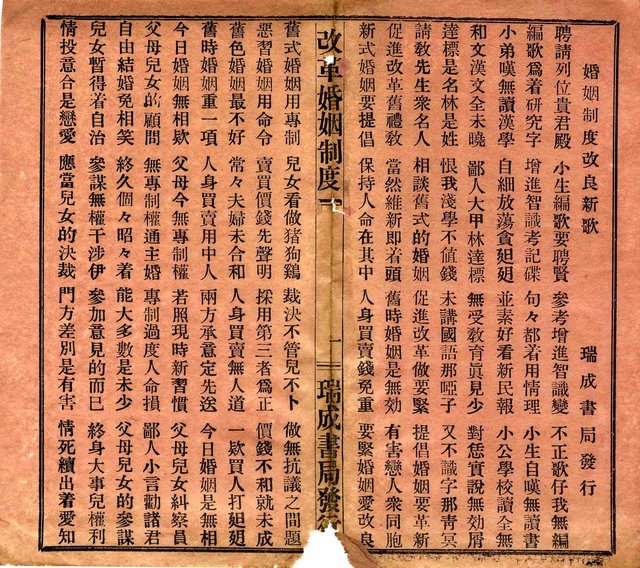 婚姻制度改良新歌　瑞成書局發行
聘請列位貴君殿　小生編歌要聘賢　參考增進智識變　不正歌仔我無編
編歌為着研究字　增進智識考記碟　句々都着用情理　小生自嘆無讀書
小弟嘆無讀漢學　自細放蕩貪𨑨迌　並素好看新民報　小公學校讀全無
和文漢文全未曉　鄙人大甲林達標　無受教育眞見少　對恁實說無効屑
達標是名林是姓　恨我淺學不值錢　未講國語那啞子　又不識字那靑冥
請教先生衆名人　相談舊式的婚姻　促進改革做要緊　提倡婚姻要革新
促進改革舊禮敎　當然維新即着頭　舊時婚姻是無効　有害戀人衆同胞
新式婚姻要提倡　保持人命在其中　人身買賣錢免重　要緊婚姻愛改良
改革婚姻制度　一　瑞成書局發行
舊式婚姻用專制　兒女看做猪狗鷄　裁決不管兒不卜　做無抗議之間題
惡習婚姻用命令　賣買價錢先聲明　採用第三者為正　價錢不和就未成
舊色婚姻最不好　常々夫婦未合和　人身買賣無人道　一欵買人打𨑨迌
舊時婚姻重一項　人身買賣用中人　兩方承意定先送　今日婚姻是無相
今日婚姻無相欵　父母今無專制權　若照現時新習慣　父母兒女糾察員
父母兒女的顧問　無專制權通主婚　專制過度人命損　鄙人小言勸諸君
自由結婚免相笑　終久個々昭々着　能大多數是未少　父母兒女的參謀
兒女暫得着自治　參謀無權干涉伊　參加意見的而已　終身大事兒權利
情投意合是戀愛　應當兒女的決裁　門方差別是有害　情死續出着愛知